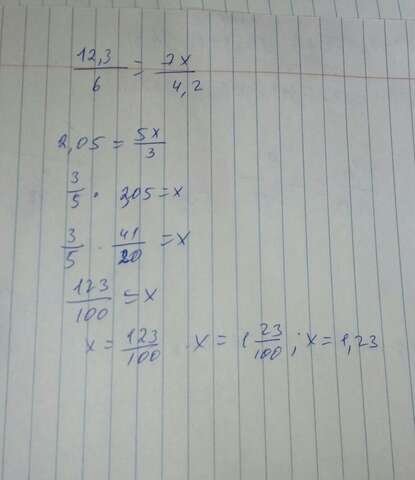 12,3/6 = 7x/4,2
2,05 = 5x/3
3/5 · 2,05 = x
3/5 · 41/20 = x
123/100 = x
x = 123/100 . x = 1 23/100 ; x = 1,23